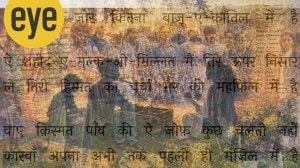 eye
ज़ोर कितना बाज़ु-ए-क़ातिल में है
ऐ शहीद-ए-मुल्क-ओ-मिल्लत मैं तिरे ऊपर निसार
ले तिरी हिम्मत का चर्चा ग़ैर की महफ़िल में है
वाए क़िस्मत पाँव की ऐ ज़ोफ़ कुछ चलती नहीं
कारवाँ अपना अभी तक पहली ही मंज़िल में है